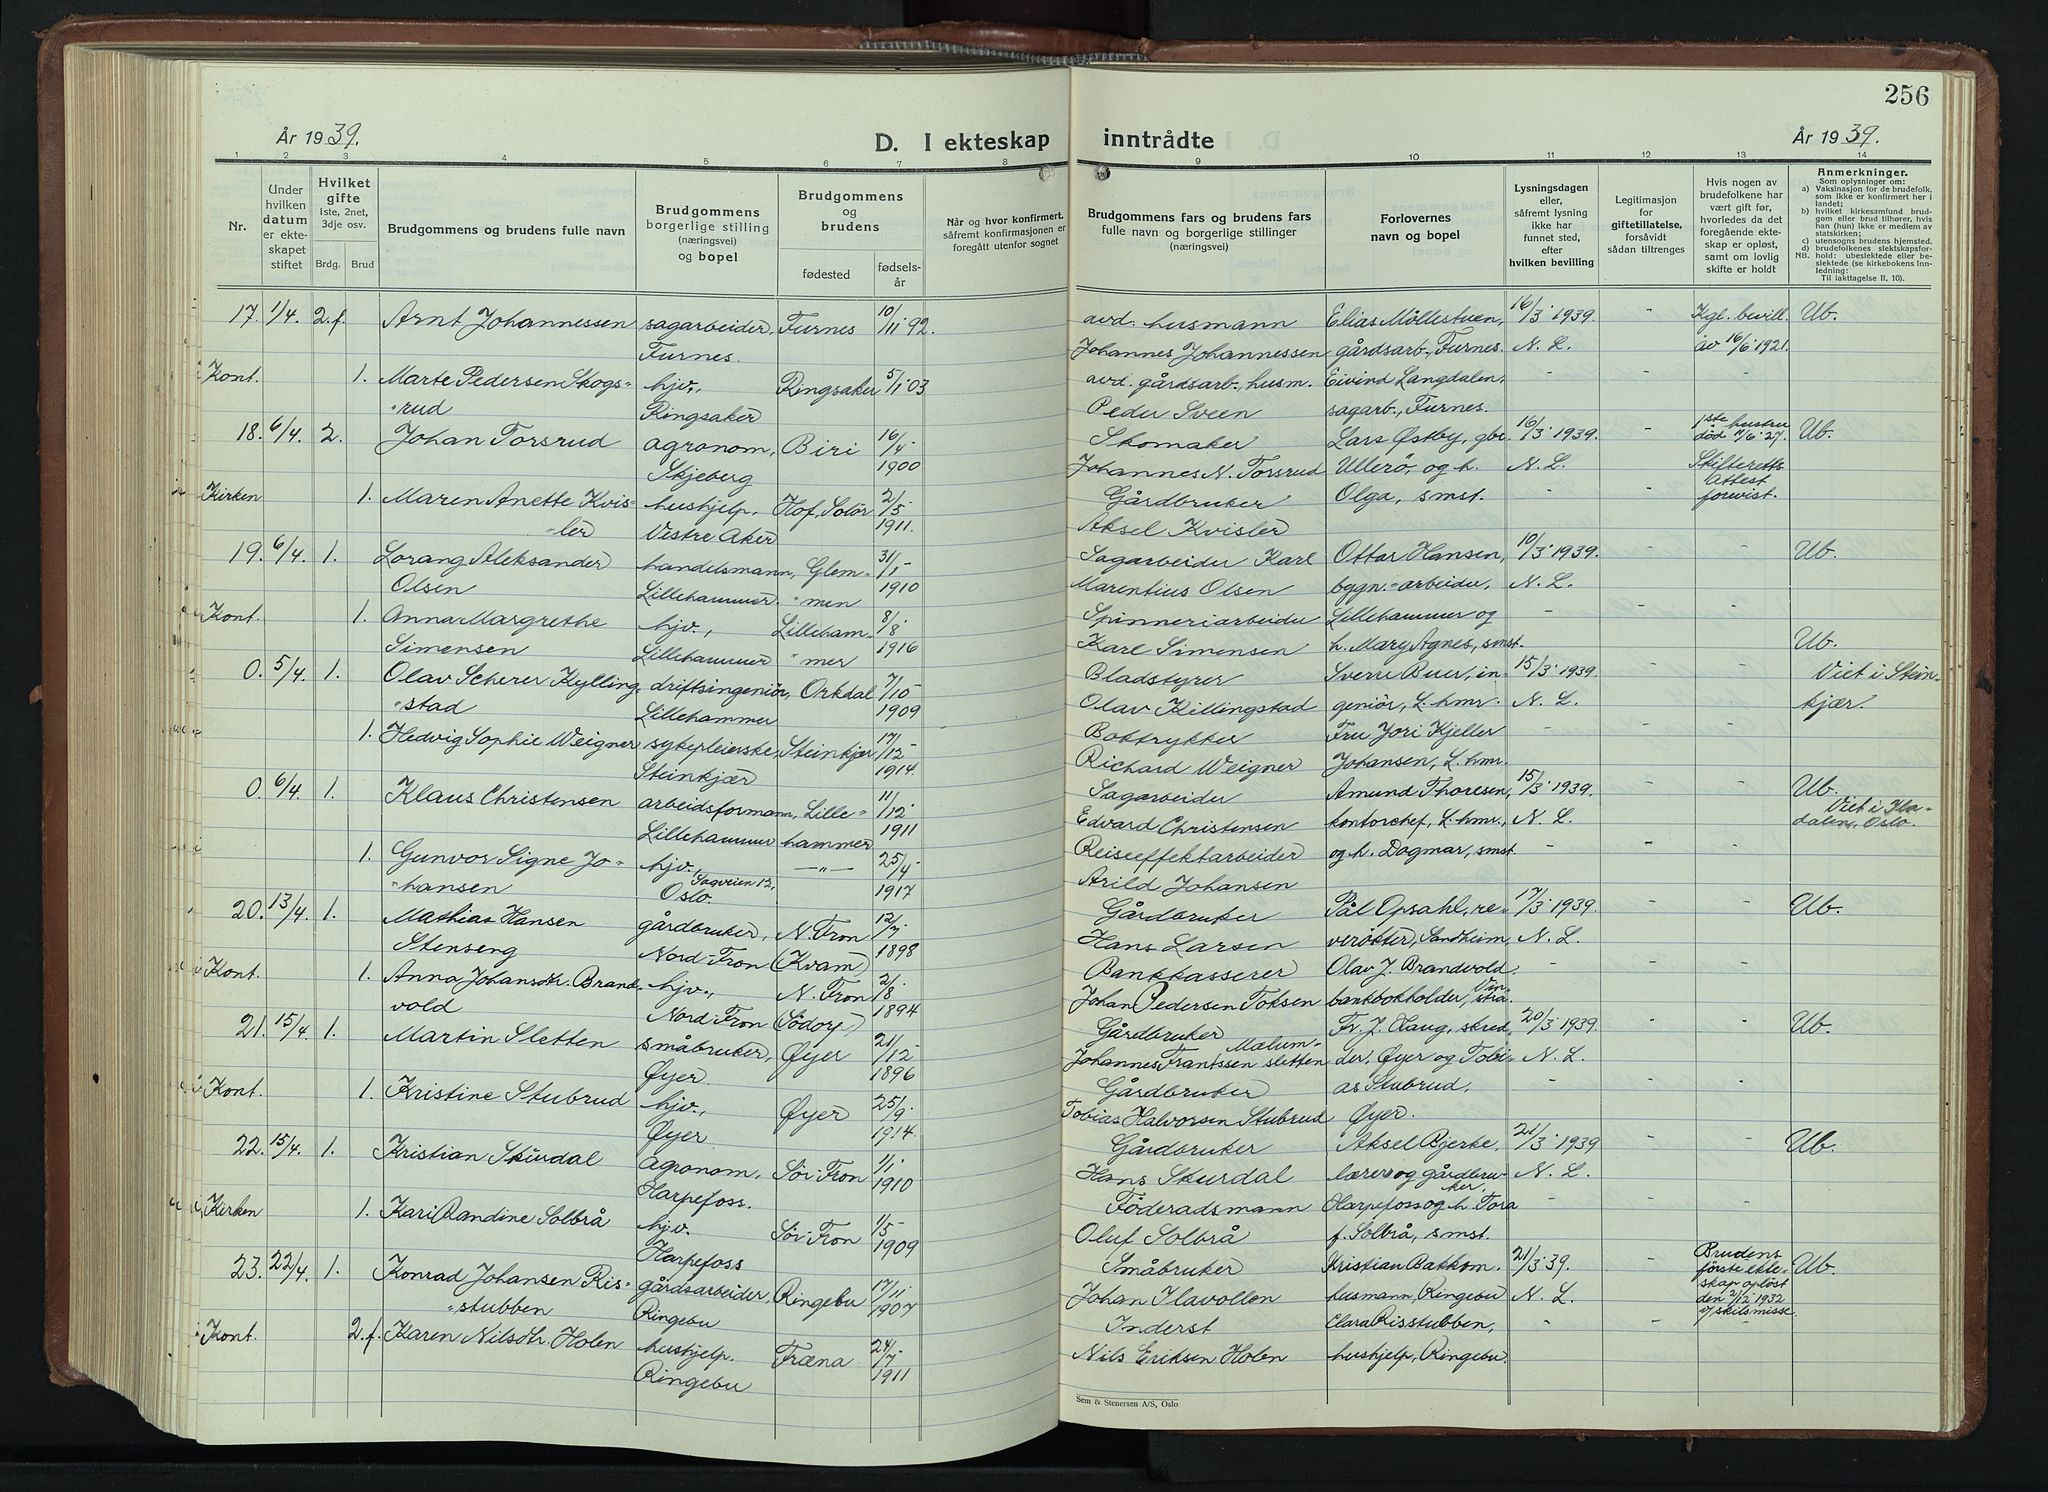 256
År 1939.
D. I ekteskap inntrådte
År 1939.
1 2 3 4 5 6 7 8 9 10 11 12 13 14
Nr.
Under hvilken datum er ekteskapet stiftet
Hvilket gifte
1ste, 2net, 3dje osv.
Brdg. Brud
Brudgommens og brudens fulle navn
Brudgommens borgerlige stilling (næringsvei) og bopel
Brudgommens og brudens
fødested
fødselsår
Når og hvor konfirmert, såfremt konfirmasjonen er foregått utenfor sognet
Brudgommens fars og brudens fars fulle navn og borgerlige stillinger (næringsvei)
Forlovernes navn og bopel
Lysningsdagen eller, såfremt lysning ikke har funnet sted, efter hvilken bevilling
Legitimasjon for giftetillatelse, forsåvidt sådan tiltrenges
Hvis nogen av brudefolkene har vært gift før, hvorledes da det foregående ekteskap er opløst, samt om lovlig skifte er holdt
Anmerkninger.
Som oplysninger om:
a) Vaksinasjon for de brudefolk, som ikke er konfirmert her i landet;
b) hvilket kirkesamfund brudgom eller brud tilhører, hvis han (hun) ikke er medlem av statskirken;
c) utensogns brudens hjemsted.
d) brudefolkenes slektskapsforhold: ubeslektede eller beslektede (se kirkebokens Innledning:
NB.
Til iakttagelse II. 10).
17. 1/4. 2.f. Arnt Johannessen sagarbeider, Furnes 10/11 92. avd. husmann Elias Möllestuen, 16/3 1939. - Kgl. bevill. Ub.
Furnes. Johannes Johannessen gårdsarb., Furnes. N. L. av 16/6 1921.
Kont. 1. Marte Pedersen Skogs- hjv., Ringsaker 5/1 03 avd. gårdsarb., husm. Eivind Langdalen, - - -
"rud Ringsaker Peder Sveen sagarb., Furnes.
18. 6/4. 2. Johan Torsrud agronom, Biri 16/4 1900 Skomaker Lars Østby, gbr. 16/3 1939. - 1ste hustru død 11/6 27. Ub.
Skjeberg Johannes N. Torsrud Ullerö, og h. N. L. Skifteretts
Kirken 1. Maren Anette Kvis- hushjelp, Hof, Solör 2/5 1911. Gårdbruker Olga, smst. - - attest forevist.
"lër Vestre Aker Aksel Kvislër
19. 6/4. 1. Lorang Aleksander handelsmann, Glem- 31/1 1910 Sagarbeider Karl Ottar Hansen, 10/3 1939. - - Ub.
Olsen Lillehammer. "men Marentius Olsen bygn.-arbeider, N. L.
Kont. 1. Anna Margrethe hjv., Lilleham- 8/8 1916 Spinneriarbeider Lillehammer og - - -
Simensen Lillehammer "mer Karl Simensen h. Mary Agnes, smst. Ub.
0. 5/4. 1. Olav Scherer Kylling driftsingeniør, Orkdal 7/10 1909 Bladstyrer Sverre Buer, in- 15/3 1939. - - Viet i Stein-
"stad Lillehammer Olav Killingstad geniör, L.hmr. N. L. kjær.
1. Hedvig Sophie Weigner sykepleierske, Steinkjær 17/12 1914. Boktrykker Fru Jori Kjeller
Steinkjær Richard Weigner Johansen, L.hmr.
0. 6/4. 1. Klaus Christensen arbeidsformann, Lille- 11/12 1911 Sagarbeider Amund Thoresen, 15/3 1939. - - Ub.
Lillehammer hammer Edvard Christensen kontorchef, L.hmr., N. L. Viet i Ila-dalen, Oslo.
1. Gunvor Signe Jo- hjv., -"- 25/4 1917 Reiseeffektarbeider og h. Dagmar, smst. - - -
"hansen Oslo. Sagveien 12, Arild Johansen
20. 13/4. 1. Mathias Hansen gårdbruker, N. Fron 12/7 1898 Gårdbruker Pål Opsahl, re- 17/3 1939. - - Ub.
Stenseng Nord-Fron (Kvam) Hans Larsen verøkter, Sandheim, N. L.
Kont. 1. Anna Johansdtr. Brand- hjv., N. Fron 2/8 1894 Bankkasserer Olav J. Brandvold - - -
vold Nord-Fron (Södorp) Johan Pedersen Toksen bankbokholder, Vinstra.
21. 15/4. 1. Martin Sletten småbruker, Øyer 21/12 1896 Gårdbruker Fr. J. Haug, skred- 20/3 1939. - - Ub.
Øyer. Johannes Frantssen Mælum-sletten der, Øyer og Tobi- N. L.
Kont. 1. Kristine Stubrud hjv., Øyer 25/9 1914. Gårdbruker as Stubrud, - - -
Øyer Tobias Halvorsen Stubrud Øyer.
22. 15/4. 1. Kristian Skurdal agronom, Sör-Fron 1/1 1910 Gårdbruker Aksel Bjerke, 21/3 1939 - - Ub.
Harpefoss. Hans Skurdal lærer og gårdbruker, N. L.
Kirken 1. Kari Randine Solbrå hjv. Sör-Fron 1/5 1909 Föderådsmann Harpefoss og h. Tora - - -
Harpefoss Oluf Solbrå f. Solbrå, smst.
23. 22/4. 1. Konrad Johansen Ris- gårdsarbeider, Ringebu 17/11 1907 Småbruker Kristian Bakkom. 21/3 39. - Brudens første ekte-skap opløst den 2/12 1932 v/ skilsmisse. Ub.
"stubben Ringebu Johan Flavollen husmann, Ringebu N. L.
Kont. 2.f. Karen Nilsdtr. Holen hushjelp. Fræna 24/7 1911 Inderst Clara Risstubben, - -
Ringebu Nils Eriksen Holen hushjelp, Ringebu.
Sem & Stenersen A/S, Oslo